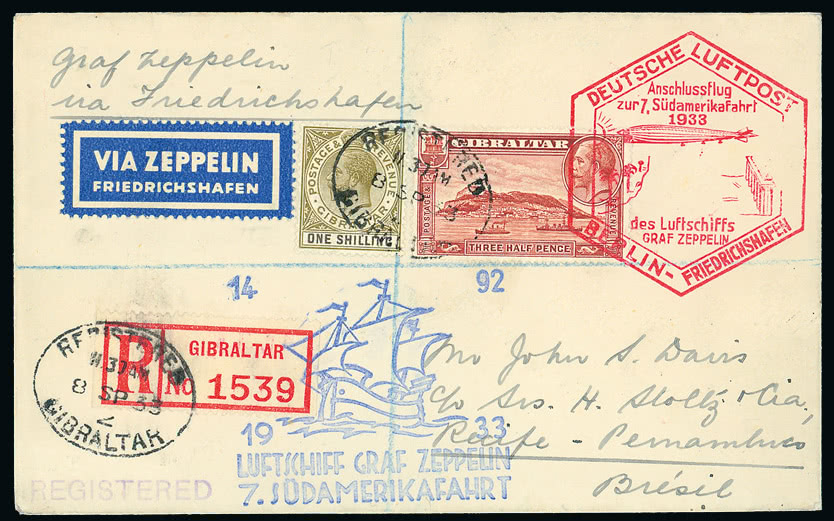 Graf Zeppelin
via Friedrichshafen
VIA ZEPPELIN
FRIEDRICHSHAFEN
POSTAGE & REVENUE
GIBRALTAR
ONE SHILLING
GIBRALTAR
POSTAGE &
REVENUE
THREE HALF PENCE
REGISTERED
8 SP 33
GIBRALTAR
DEUTSCHE LUFTPOST
Anschlussflug
zur 7. Südamerikafahrt
1933
des Luftschiffs
GRAF ZEPPELIN
BERLIN-FRIEDRICHSHAFEN
14 92
REGISTERED
8 SP 33
2
GIBRALTAR
R
GIBRALTAR
No 1539
Mr John S. Davis
c/o Srs. H. Stoltz & Cia,
Recife - Pernambuco
Brésil
19 33
LUFTSCHIFF GRAF ZEPPELIN
7. SÜDAMERIKAFAHRT
REGISTERED